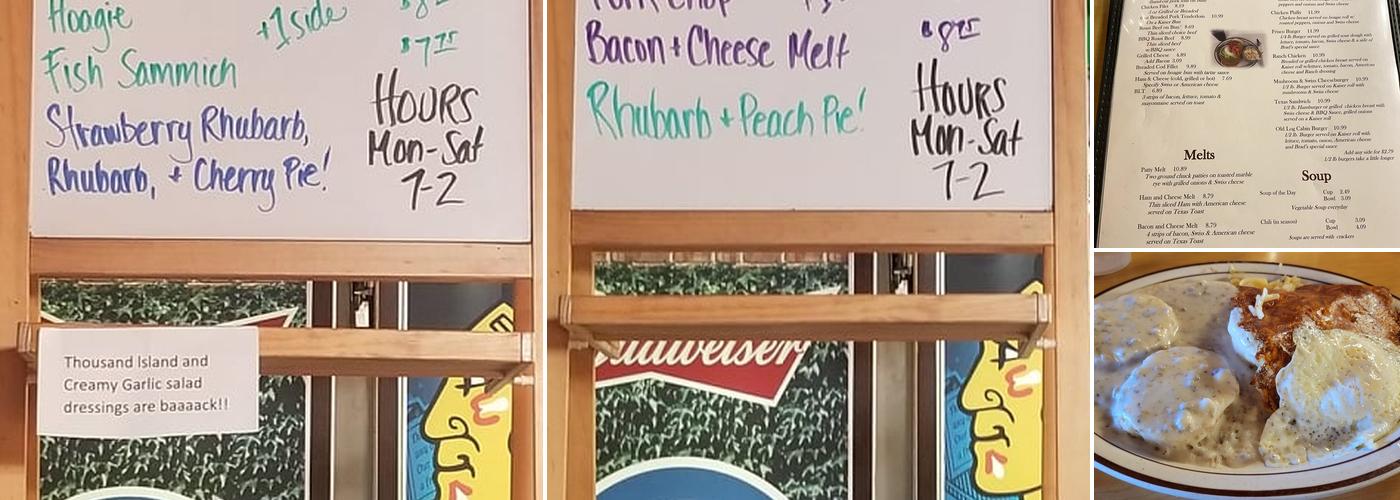 Hoagie
+1 side
Fish Sammich
$7.75
Strawberry Rhubarb,
Rhubarb, + Cherry Pie!
HOURS
Mon-Sat
7-2
Thousand Island and
Creamy Garlic salad
dressings are baaaack!!
Bacon + Cheese Melt
$8.75
Rhubarb + Peach Pie!
HOURS
Mon-Sat
7-2
Budweiser
Chicken Filet 8.19
3 oz Grilled or Breaded
Breaded Pork Tenderloin 10.99
On a Kaiser Bun
Thin sliced choice beef
BBQ Roast Beef 8.99
Thin sliced beef
w/BBQ sauce
Grilled Cheese 4.89
Add Bacon 3.09
Breaded Cod Fillet 9.89
Served on hoagie bun with tartar sauce
Ham & Cheese (cold, grilled or hot) 7.69
Specify Swiss or American cheese
BLT 6.89
3 strips of bacon, lettuce, tomato &
mayonnaise served on toast
Melts
Patty Melt 10.89
Two ground chuck patties on toasted marble
rye with grilled onions & Swiss cheese
Ham and Cheese Melt 8.79
Thin sliced Ham with American cheese
served on Texas Toast
Bacon and Cheese Melt 8.79
4 strips of bacon, Swiss & American cheese
served on Texas Toast
peppers, onions and Swiss cheese
Chicken Philly 11.99
Chicken breast served on hoagie roll w/
roasted peppers, onions and Swiss cheese
Frisco Burger 11.99
1/2 lb Burger served on grilled sour dough with
lettuce, tomato, bacon, Swiss cheese & a side of
Brad's special sauce
Ranch Chicken 10.99
Breaded or grilled chicken breast served on
Kaiser roll w/lettuce, tomato, bacon, American
cheese and Ranch dressing
Mushroom & Swiss Cheeseburger 10.99
1/2 lb. Burger served on Kaiser roll with
mushrooms & Swiss cheese
Texas Sandwich 10.99
1/2 lb. Hamburger or grilled chicken breast with
Swiss cheese & BBQ Sauce, grilled onions
served on a Kaiser roll
Old Log Cabin Burger 10.99
1/2 lb. Burger served on Kaiser roll with
lettuce, tomato, onion, American cheese
and Brad's special sauce
Add any side for $2.79
1/2 lb burgers take a little longer
Soup
Soup of the Day Cup 3.49
Bowl 5.09
Vegetable Soup everyday
Chili (in season) Cup 3.09
Bowl 4.09
Soups are served with crackers